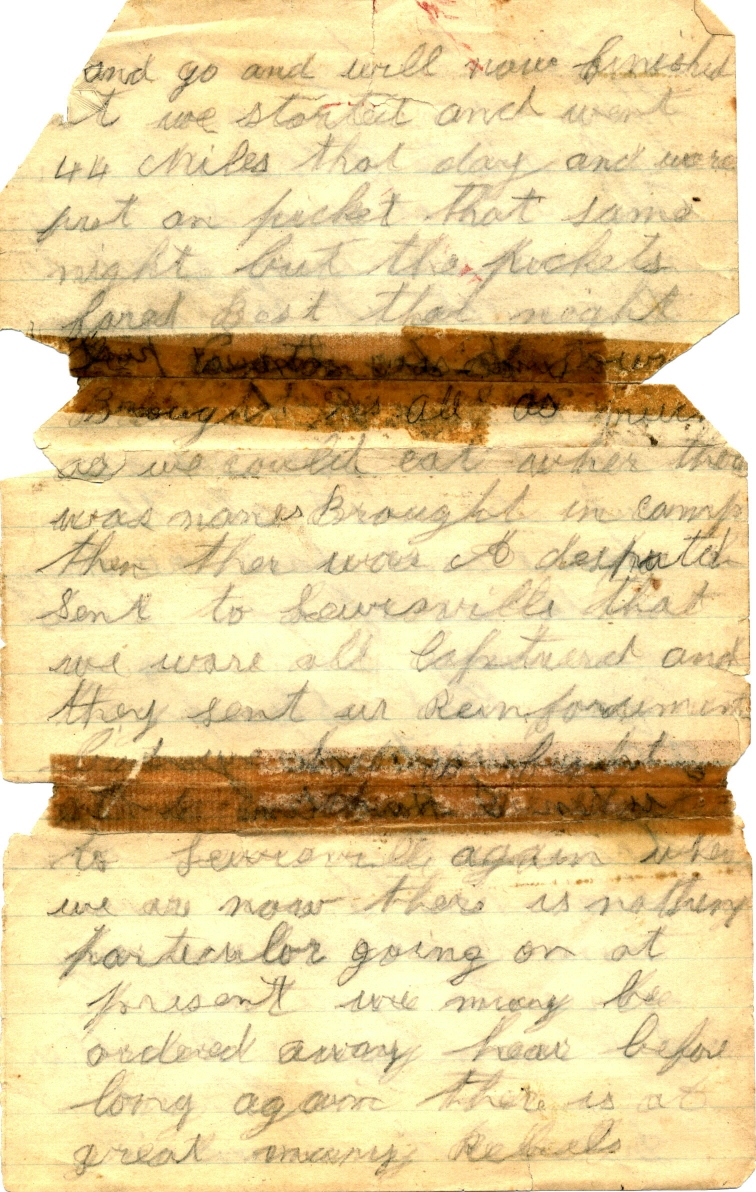 and go and will now finish
it we started and went
44 Miles that day and ware
put on picket that same
night but the Pickets
fared Best that night
Brought us all as
as we could eat wher the
was none Brought in camp
then ther was A despatch
Sent to Lewisville that
we ware all Capturd and
they sent us Reinforsment
to Lewisvill again wher
we are now there is nothing
particulor going on at
present we may be
ordered away hear before
long again there is at
great many Rebels